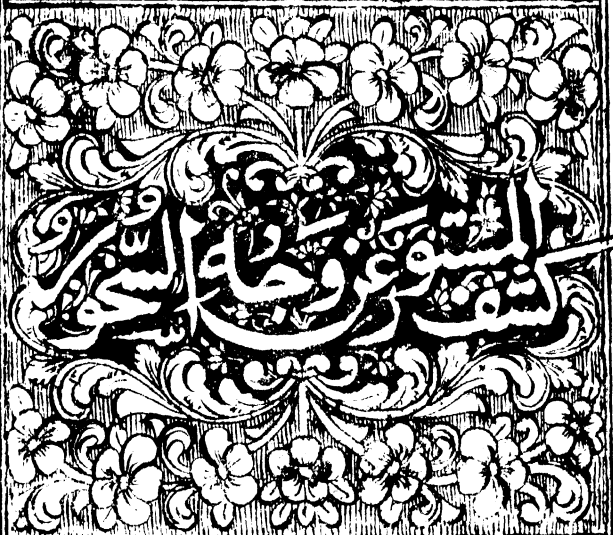 كشف المستور عن وجه السّحور